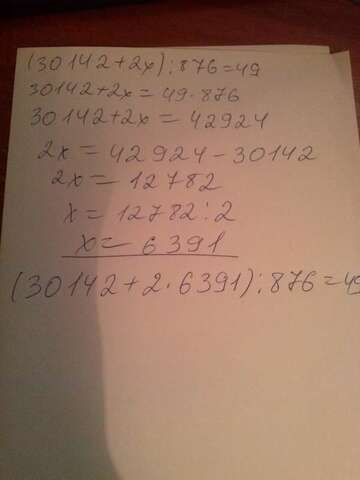 (30142+2x):876=49
30142+2x=49·876
30142+2x=42924
2x=42924-30142
2x=12782
x=12782:2
x=6391
(30142+2·6391):876=49